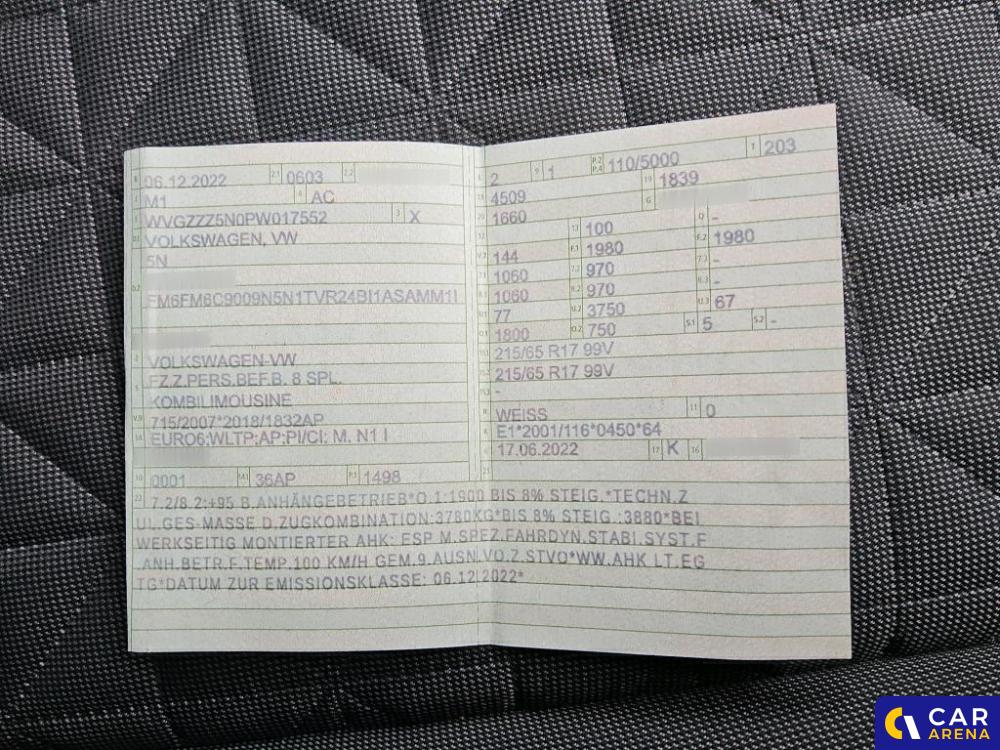 B 06.12.2022 2.1 0603 2.2
J M1 4 AC
E WVGZZZ5N0PW017552 3 X
D.1 VOLKSWAGEN, VW
5N
D.2
FM6FM6C9009N5N1TVR24BI1ASAMM1I
2 VOLKSWAGEN-VW
5 FZ.Z.PERS.BEF.B. 8 SPL.
KOMBILIMOUSINE
V.9 715/2007*2018/1832AP
14 EURO6;WLTP;AP;PI/CI; M, N1 I
10 0001 14.1 36AP P.1 1498
L 2 9 1 P.2 P.4 110/5000 T 203
18 4509 19 1839
20 1660 G
12 13 100 Q -
V.7 144 F.1 1980 F.2 1980
7.1 1060 7.2 970 7.3 -
8.1 1060 8.2 970 8.3 -
U.1 77 U.2 3750 U.3 67
O.1 1800 O.2 750 S.1 5 S.2 -
15.1 215/65 R17 99V
15.2 215/65 R17 99V
-
R WEISS 11 0
K E1*2001/116*0450*64
6 17.06.2022 17 K 16
21
22 7.2/8.2:+95 B.ANHÄNGEBETRIEB*O.1:1900 BIS 8% STEIG.*TECHN.Z
UL.GES-MASSE D.ZUGKOMBINATION:3780KG*BIS 8% STEIG.:3880*BEI
WERKSEITIG MONTIERTER AHK: ESP M.SPEZ.FAHRDYN.STABI.SYST.F
.ANH.BETR.F.TEMP.100 KM/H GEM.9.AUSN.VO.Z.STVO*WW.AHK LT.EG
TG*DATUM ZUR EMISSIONSKLASSE: 06.12.2022*
CAR
ARENA